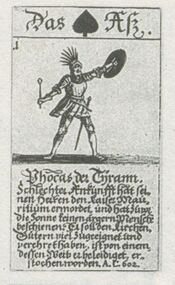 Das ♠ Aſz.
1
Phocas der Tyrann.
Schlechter Ankunfft hat ſei-
nen Herren den Kaiſer Mau-
ritium ermordet, und hat
die Sonne keinen ärgern Menſchẽ
beſchienen. Er ſoll den Kirchen,
Gütern viel zugeeignet und
verehrt haben, iſt von einem
deſſen Weib er beleidiget, er-
ſtochen worden, A. C. 602.